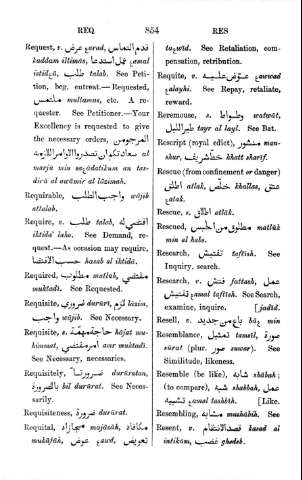 REQ 854 RES
Request, v. عرض ɛarḍ, قدم التماس
ḳuddam iltimâs, عمل استدعا ɛamal
istidɛâ, طلب talab. See Peti-
tion, beg, entreat.—Requested,
ملتمس multamas, etc. A re-
quester. See Petitioner.—Your
Excellency is requested to give
the necessary orders, المرجو من
سعادتكم ان تصدروا الاوامر اللازمه al
marjû min saɛâdatikum an tas-
dirû al awâmir al lâzimah.
Requirable, واجب الطلب wâjib
attalab.
Require, v. طلب talab, اقتضى له
iktiḍa' lahu. See Demand, re-
quest.—As occasion may require,
حسب الاقتضا hasb al iktiḍâ.
Required, مطلوب matlûb, مقتضي
muktaḍi. See Requested.
Requisite, ضروري ḍurûri, لازم lâzim,
واجب wâjib. See Necessary.
Requisite, s. حاجة مهمة hâjat mu-
himmat, امر مقتضي amr muktaḍi.
See Necessary, necessaries.
Requisitely, ضرورتاً ḍurûratan,
بالضرورة bil ḍurûrat. See Neces-
sarily.
Requisiteness, ضرورة ḍurûrat.
Requital, مجازاة majâzâh, مكافاة
mukâfâh, عوض ɛawḍ, تعويض
taɛwîḍ. See Retaliation, com-
pensation, retribution.
Requite, v. عوّض عليه ɛawwaḍ
ɛalayhi. See Repay, retaliate,
reward.
Reremouse, s. وطواط watwât,
طير الليل tayr al layl. See Bat.
Rescript (royal edict), منشور man-
shur, خط شريف khatt sharîf.
Rescue (from confinement or danger)
اطلق atlak, خلّص khallaṣ, عتق
ɛatak.
Rescue, s. اطلاق atlâk.
Rescued, مطلوق من الحبس matlûk
min al habs.
Research, تفتيش taftîsh. See
Inquiry, search.
Research, v. فتش fattash, عمل
تفتيش ɛamal taftîsh. See Search,
examine, inquire. [jadîd.
Resell, v. باع من جديد bâɛ min
Resemblance, تمثيل tamsîl, صورة
sûrat (plur. صور suwar). See
Similitude, likeness.
Resemble (be like), شابه shâbah;
(to compare), شبه shabbah, عمل
تشبيه ɛamal tashbîh. [Like.
Resembling, مشابه mushâbih. See
Resent, v. قصد الانتقام kasad al
intikâm, غضب ghadab.